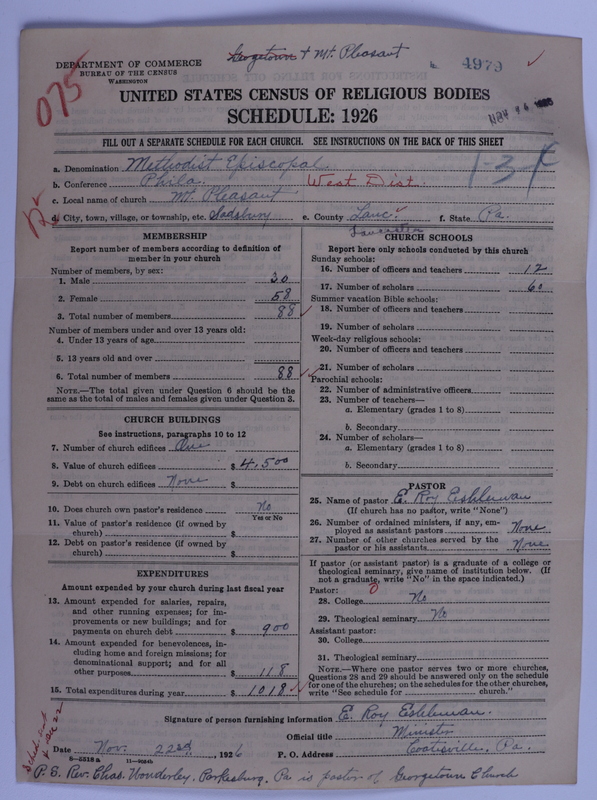 Georgetown & Mt. Pleasant
4979
DEPARTMENT OF COMMERCE
BUREAU OF THE CENSUS
WASHINGTON
075
UNITED STATES CENSUS OF RELIGIOUS BODIES
SCHEDULE: 1926
FILL OUT A SEPARATE SCHEDULE FOR EACH CHURCH. SEE INSTRUCTIONS ON THE BACK OF THIS SHEET
1-34
a. Denomination Methodist Episcopal
b. Conference Phila. West Dist.
c. Local name of church Mt. Pleasant
d. City, town, village, or township, etc. Sadsbury e. County Lanc. f. State Pa.
Lancaster
MEMBERSHIP
Report number of members according to definition of
member in your church
Number of members, by sex:
1. Male 30
2. Female 58
3. Total number of members 88
Number of members under and over 13 years old:
4. Under 13 years of age
5. 13 years old and over
6. Total number of members 88
NOTE.—The total given under Question 6 should be the
same as the total of males and females given under Question 3.
CHURCH BUILDINGS
See instructions, paragraphs 10 to 12
7. Number of church edifices One
8. Value of church edifices $ 4,500
9. Debt on church edifices None $
10. Does church own pastor's residence No
Yes or No
11. Value of pastor's residence (if owned by
church) $
12. Debt on pastor's residence (if owned by
church) $
EXPENDITURES
Amount expended by your church during last fiscal year
13. Amount expended for salaries, repairs,
and other running expenses; for im-
provements or new buildings; and for
payments on church debt $ 900
14. Amount expended for benevolences, in-
cluding home and foreign missions; for
denominational support; and for all
other purposes $ 118
15. Total expenditures during year $ 1018
CHURCH SCHOOLS
Report here only schools conducted by this church
Sunday schools:
16. Number of officers and teachers 12
17. Number of scholars 60
Summer vacation Bible schools:
18. Number of officers and teachers
19. Number of scholars
Week-day religious schools:
20. Number of officers and teachers
21. Number of scholars
Parochial schools:
22. Number of administrative officers
23. Number of teachers—
a. Elementary (grades 1 to 8)
b. Secondary
24. Number of scholars—
a. Elementary (grades 1 to 8)
b. Secondary
PASTOR
25. Name of pastor E. Roy Eshleman
(If church has no pastor, write "None")
26. Number of ordained ministers, if any, em-
ployed as assistant pastors None
27. Number of other churches served by the
pastor or his assistants None
If pastor (or assistant pastor) is a graduate of a college or
theological seminary, give name of institution below. (If
not a graduate, write "No" in the space indicated.)
Pastor: 0
28. College No
29. Theological seminary No
Assistant pastor:
30. College
31. Theological seminary
NOTE.—Where one pastor serves two or more churches,
Questions 28 and 29 should be answered only on the schedule
for one of the churches; on the schedules for the other churches,
write "See schedule for church."
Signature of person furnishing information E. Roy Eshleman.
Official title Minister
Date Nov. 22nd, 1926 P. O. Address Coatesville, Pa.
8—5518a 11—9024b
P.S. Rev. Chas. Wonderley, Parkesburg, Pa is pastor of Georgetown Church